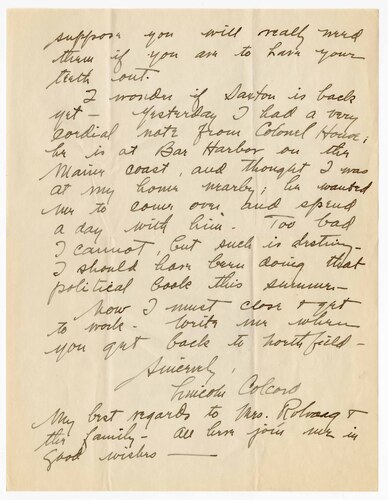 suppose you will really need
them if you are to have your
teeth out.
I wonder if Saxton is back
yet — Yesterday I had a very
cordial note from Colonel House;
he is at Bar Harbor on the
Maine coast, and thought I was
at my home nearby; he wanted
me to come over and spend
a day with him. Too bad
I cannot, but such is destiny —
I should have been doing that
political book this summer —
Now I must close & get
to work. Write me when
you get back to Northfield —
Sincerely,
Lincoln Colcord
My best regards to Mrs. Rolvaag &
the family — All here join me in
good wishes —